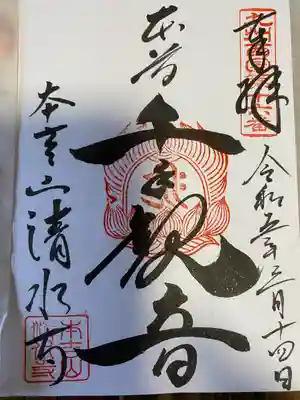 奉拝
令和五年三月十四日
本尊
千手観音
本吉山清水寺